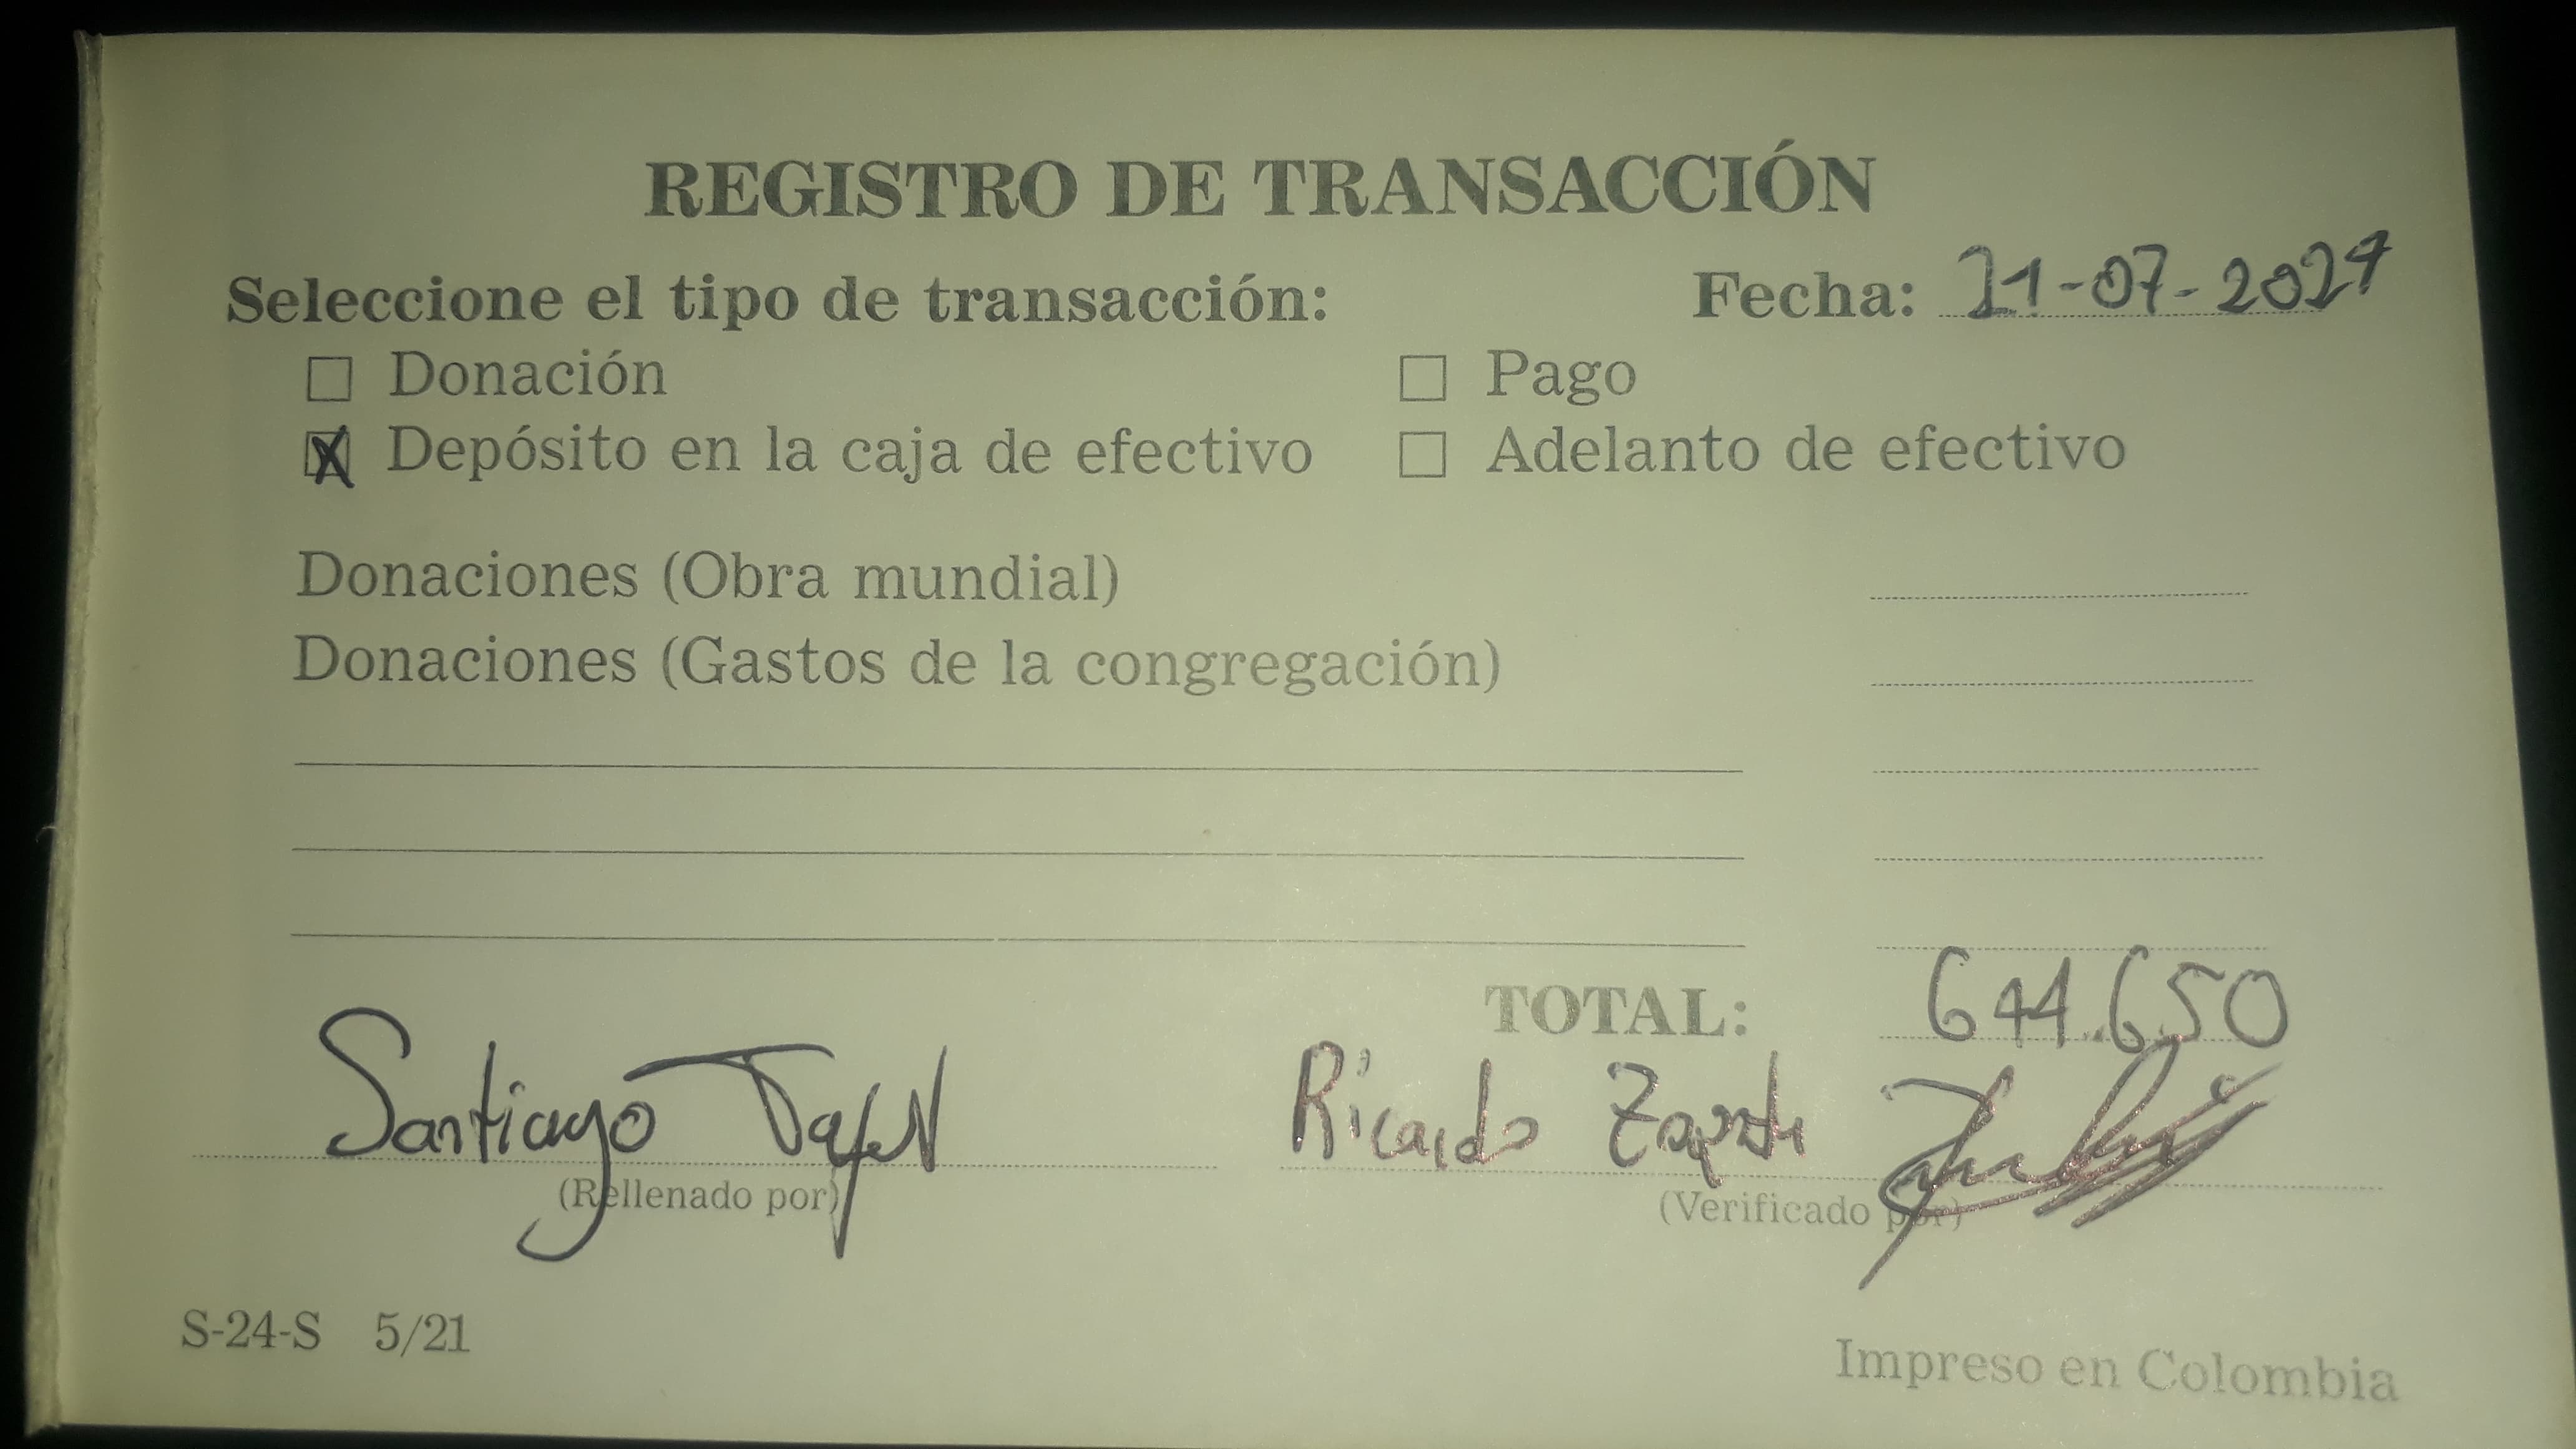 REGISTRO DE TRANSACCIÓN
Seleccione el tipo de transacción: Fecha: 21-07-2024
Donación Pago
X Depósito en la caja de efectivo Adelanto de efectivo
Donaciones (Obra mundial)
Donaciones (Gastos de la congregación)
TOTAL: 644.650
Santiago Ricardo Zapata
(Rellenado por) (Verificado por)
S-24-S 5/21 Impreso en Colombia